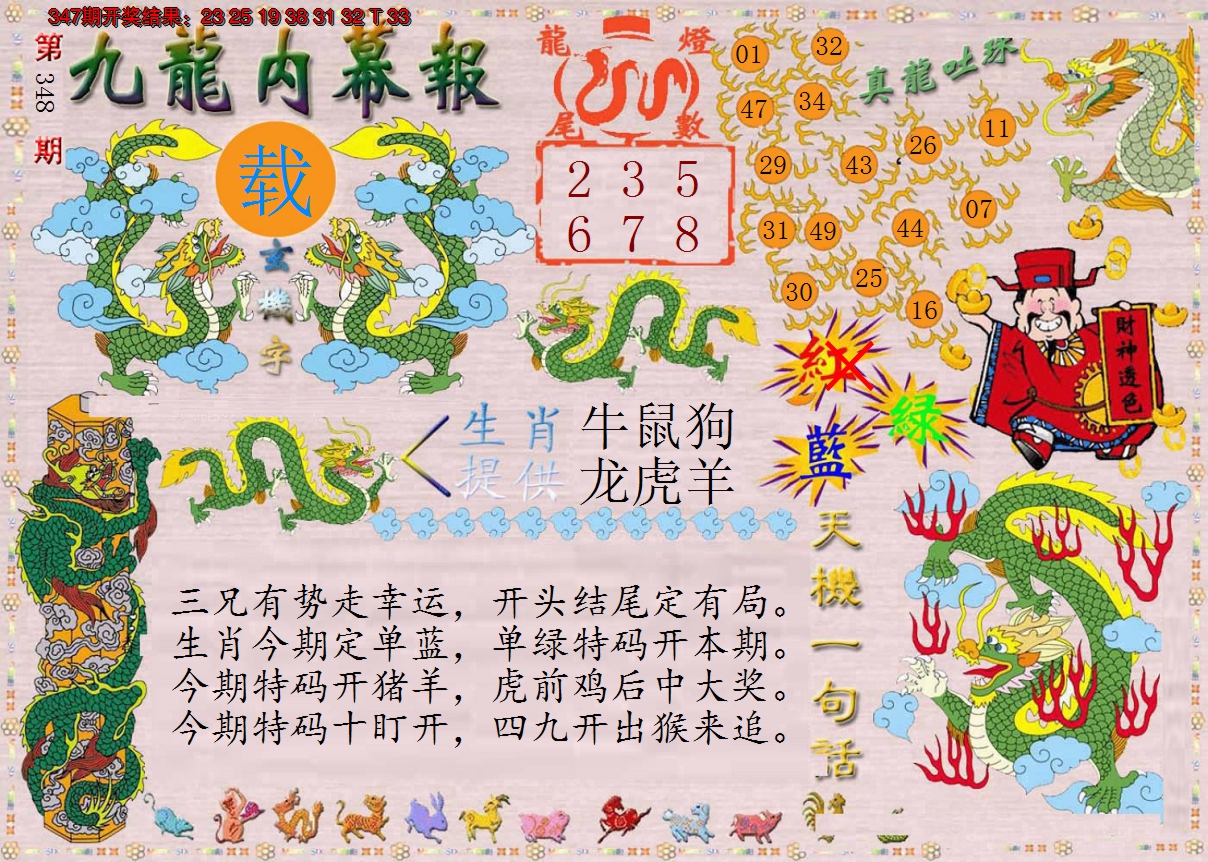 347期开奖结果：23 25 19 38 31 32 T 33
第348期
九龍内幕報
载
玄機字
龍燈尾數
2 3 5
6 7 8
真龍吐珠
01 32
47 34
29 43 26 11
31 49 44 07
30 25 16
財神透色
紅
綠
藍
生肖提供
牛鼠狗
龙虎羊
天機一句话
三兄有势走幸运，开头结尾定有局。
生肖今期定单蓝，单绿特码开本期。
今期特码开猪羊，虎前鸡后中大奖。
今期特码十盯开，四九开出猴来追。